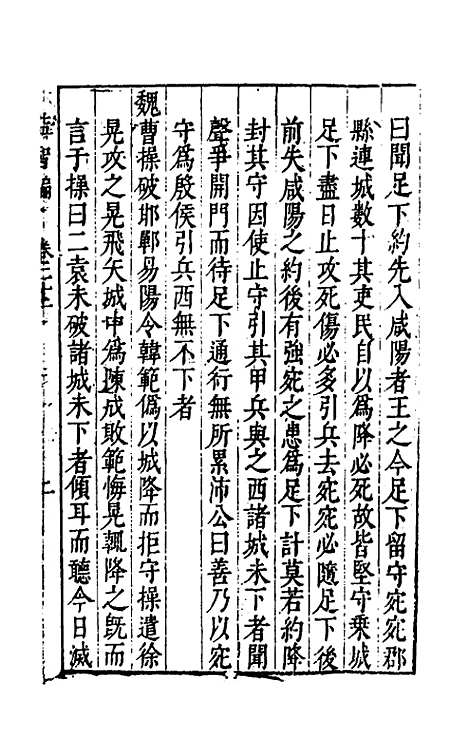 曰聞足下約先入咸陽者王之今足下留守宛宛郡
縣連城數十其吏民自以為降必死故皆堅守乗城
足下盡日止攻死傷必多引兵去宛宛必隨足下後
前失咸陽之約後有強宛之患為足下計莫若約降
封其守因使止守引其甲兵與之西諸城未下者聞
聲爭開門而待足下通行無所累沛公曰善乃以宛
守為殷侯引兵西無不下者
魏曹操破邯鄲易陽令韓範偽以城降而拒守操遣徐
晃攻之晃飛矢城中為陳成敗範悔晃輒降之既而
言于操曰二袁未破諸城未下者傾耳而聽今日滅